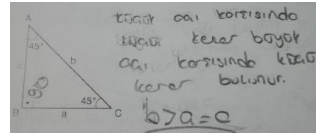 A
45°
c
b
B
a
45°
C
küçük açı karşısında
küçük kenar büyük
açı karşısında küçük
kenar bulunur.
b>a=c